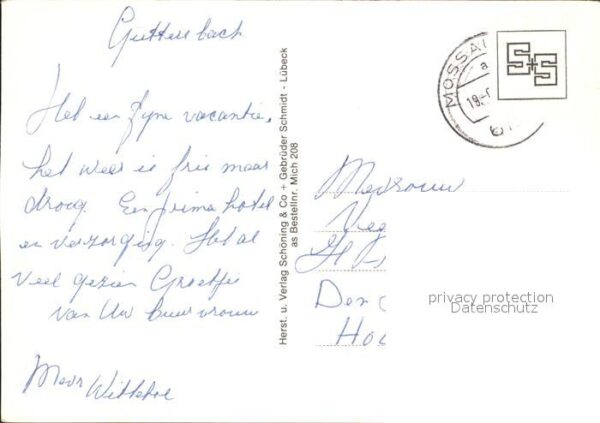 Güttersbach
Het een fijne vacantie,
het weer is fris maar
droog. Een prima hotel
en verzorging. Het al
veel gezien Groetjes
van Uw buurvrouw
Mevr
Herst. u. Verlag Schöning & Co + Gebrüder Schmidt - Lübeck
as Bestellnr. Mich 208
MOSSA
S+S
Mevrouw
Den
privacy protection
Datenschutz